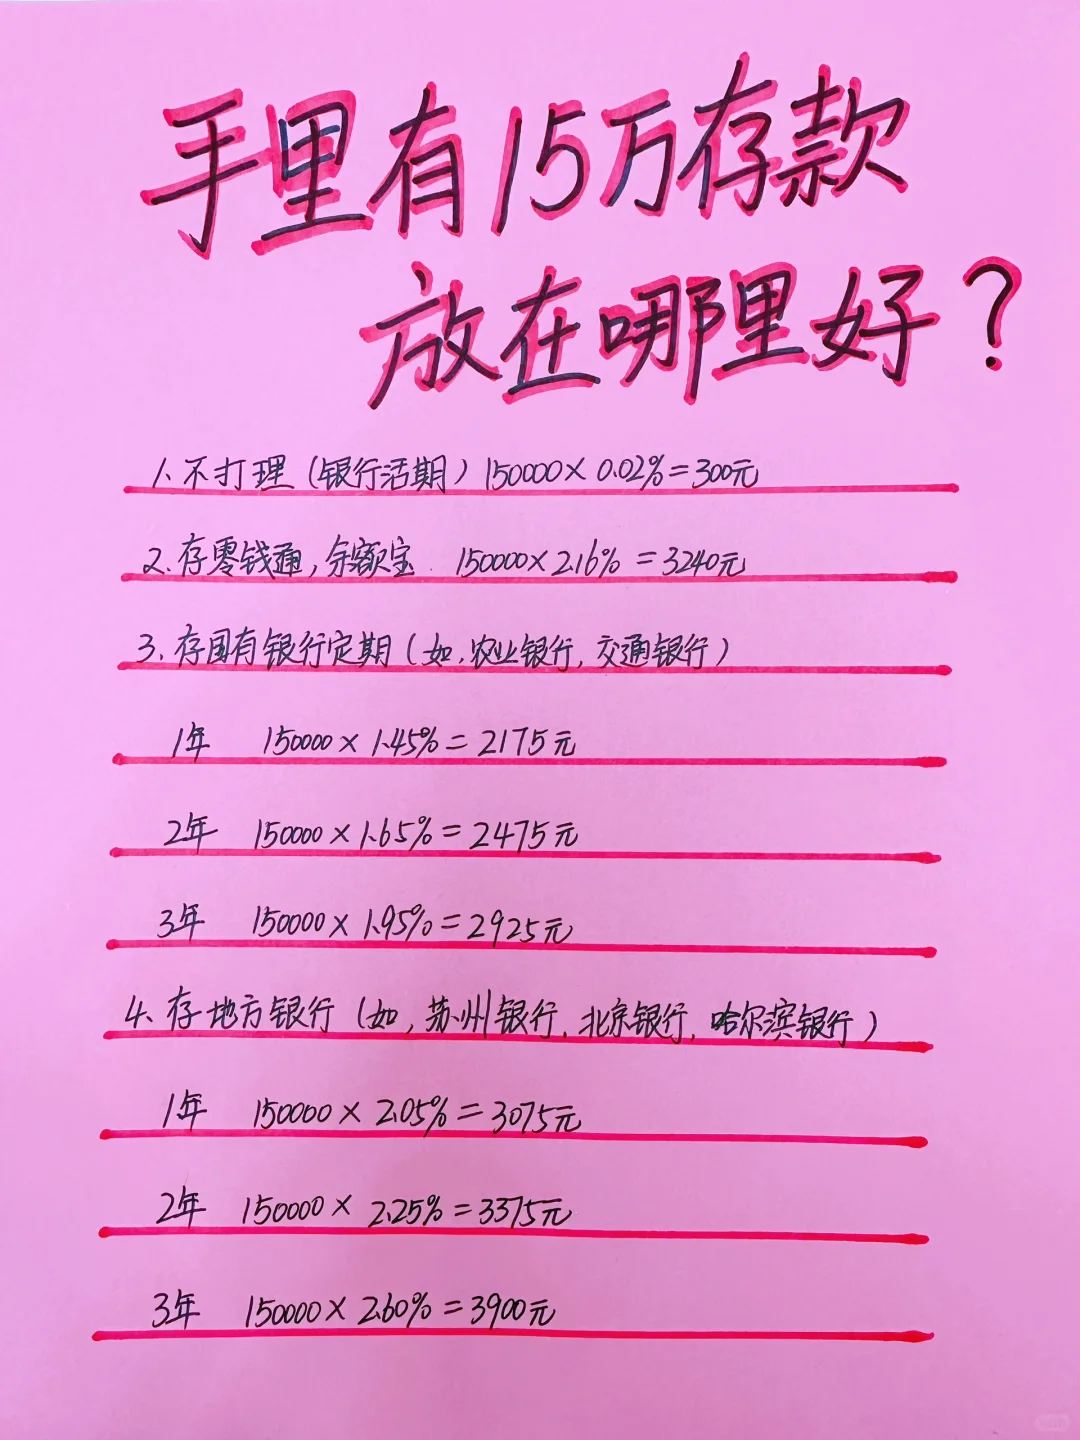 手里有15万存款
放在哪里好？
1、不打理（银行活期）150000×0.02%=300元
2、存零钱通，余额宝 150000×2.16%=3240元
3、存国有银行定期（如，农业银行，交通银行）
1年 150000×1.45%=2175元
2年 150000×1.65%=2475元
3年 150000×1.95%=2925元
4、存地方银行（如，苏州银行，北京银行，哈尔滨银行）
1年 150000×2.05%=3075元
2年 150000×2.25%=3375元
3年 150000×2.60%=3900元